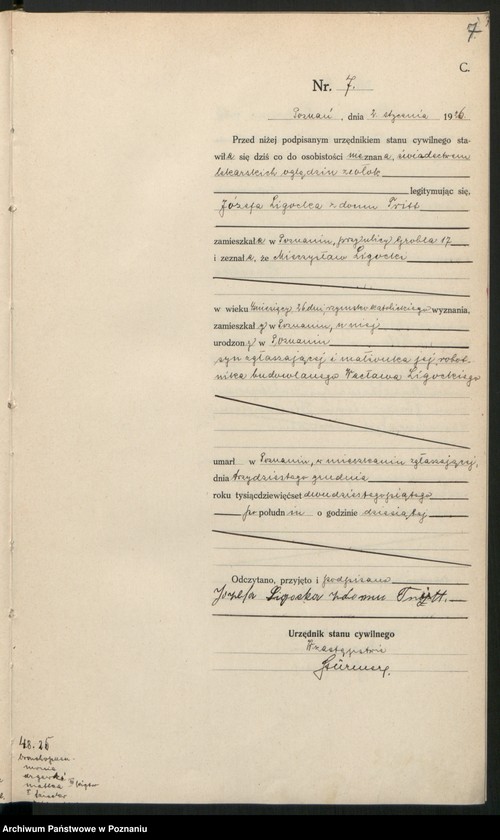 7
C.
Nr. 7.
Poznań, dnia 2. stycznia 1926.
Przed niżej podpisanym urzędnikiem stanu cywilnego sta-
wiła się dziś co do osobistości nieznana, świadectwem
lekarskich oględzin zwłok
legitymując się,
Józefa Ligocka z domu Tritt
zamieszkała w Poznaniu, przy ulicy Grobla 17
i zeznała, że Mieczysław Ligocki
w wieku 26 dni, rzymsko katolickiego wyznania,
zamieszkały w Poznaniu, u niej
urodzony w Poznaniu
syn zgłaszającej i małżonka jej, robot-
nika budowlanego Wacława Ligockiego
umarł w Poznaniu, w mieszkaniu zgłaszającej,
dnia trzydziestego grudnia
roku tysiącdziewięćset dwudziestego piątego
po południu o godzinie dziesiątej
Odczytano, przyjęto i podpisano
Józefa Ligocka z domu Tritt.
Urzędnik stanu cywilnego
W zastępstwie
48.26
matka
Archiwum Państwowe w Poznaniu